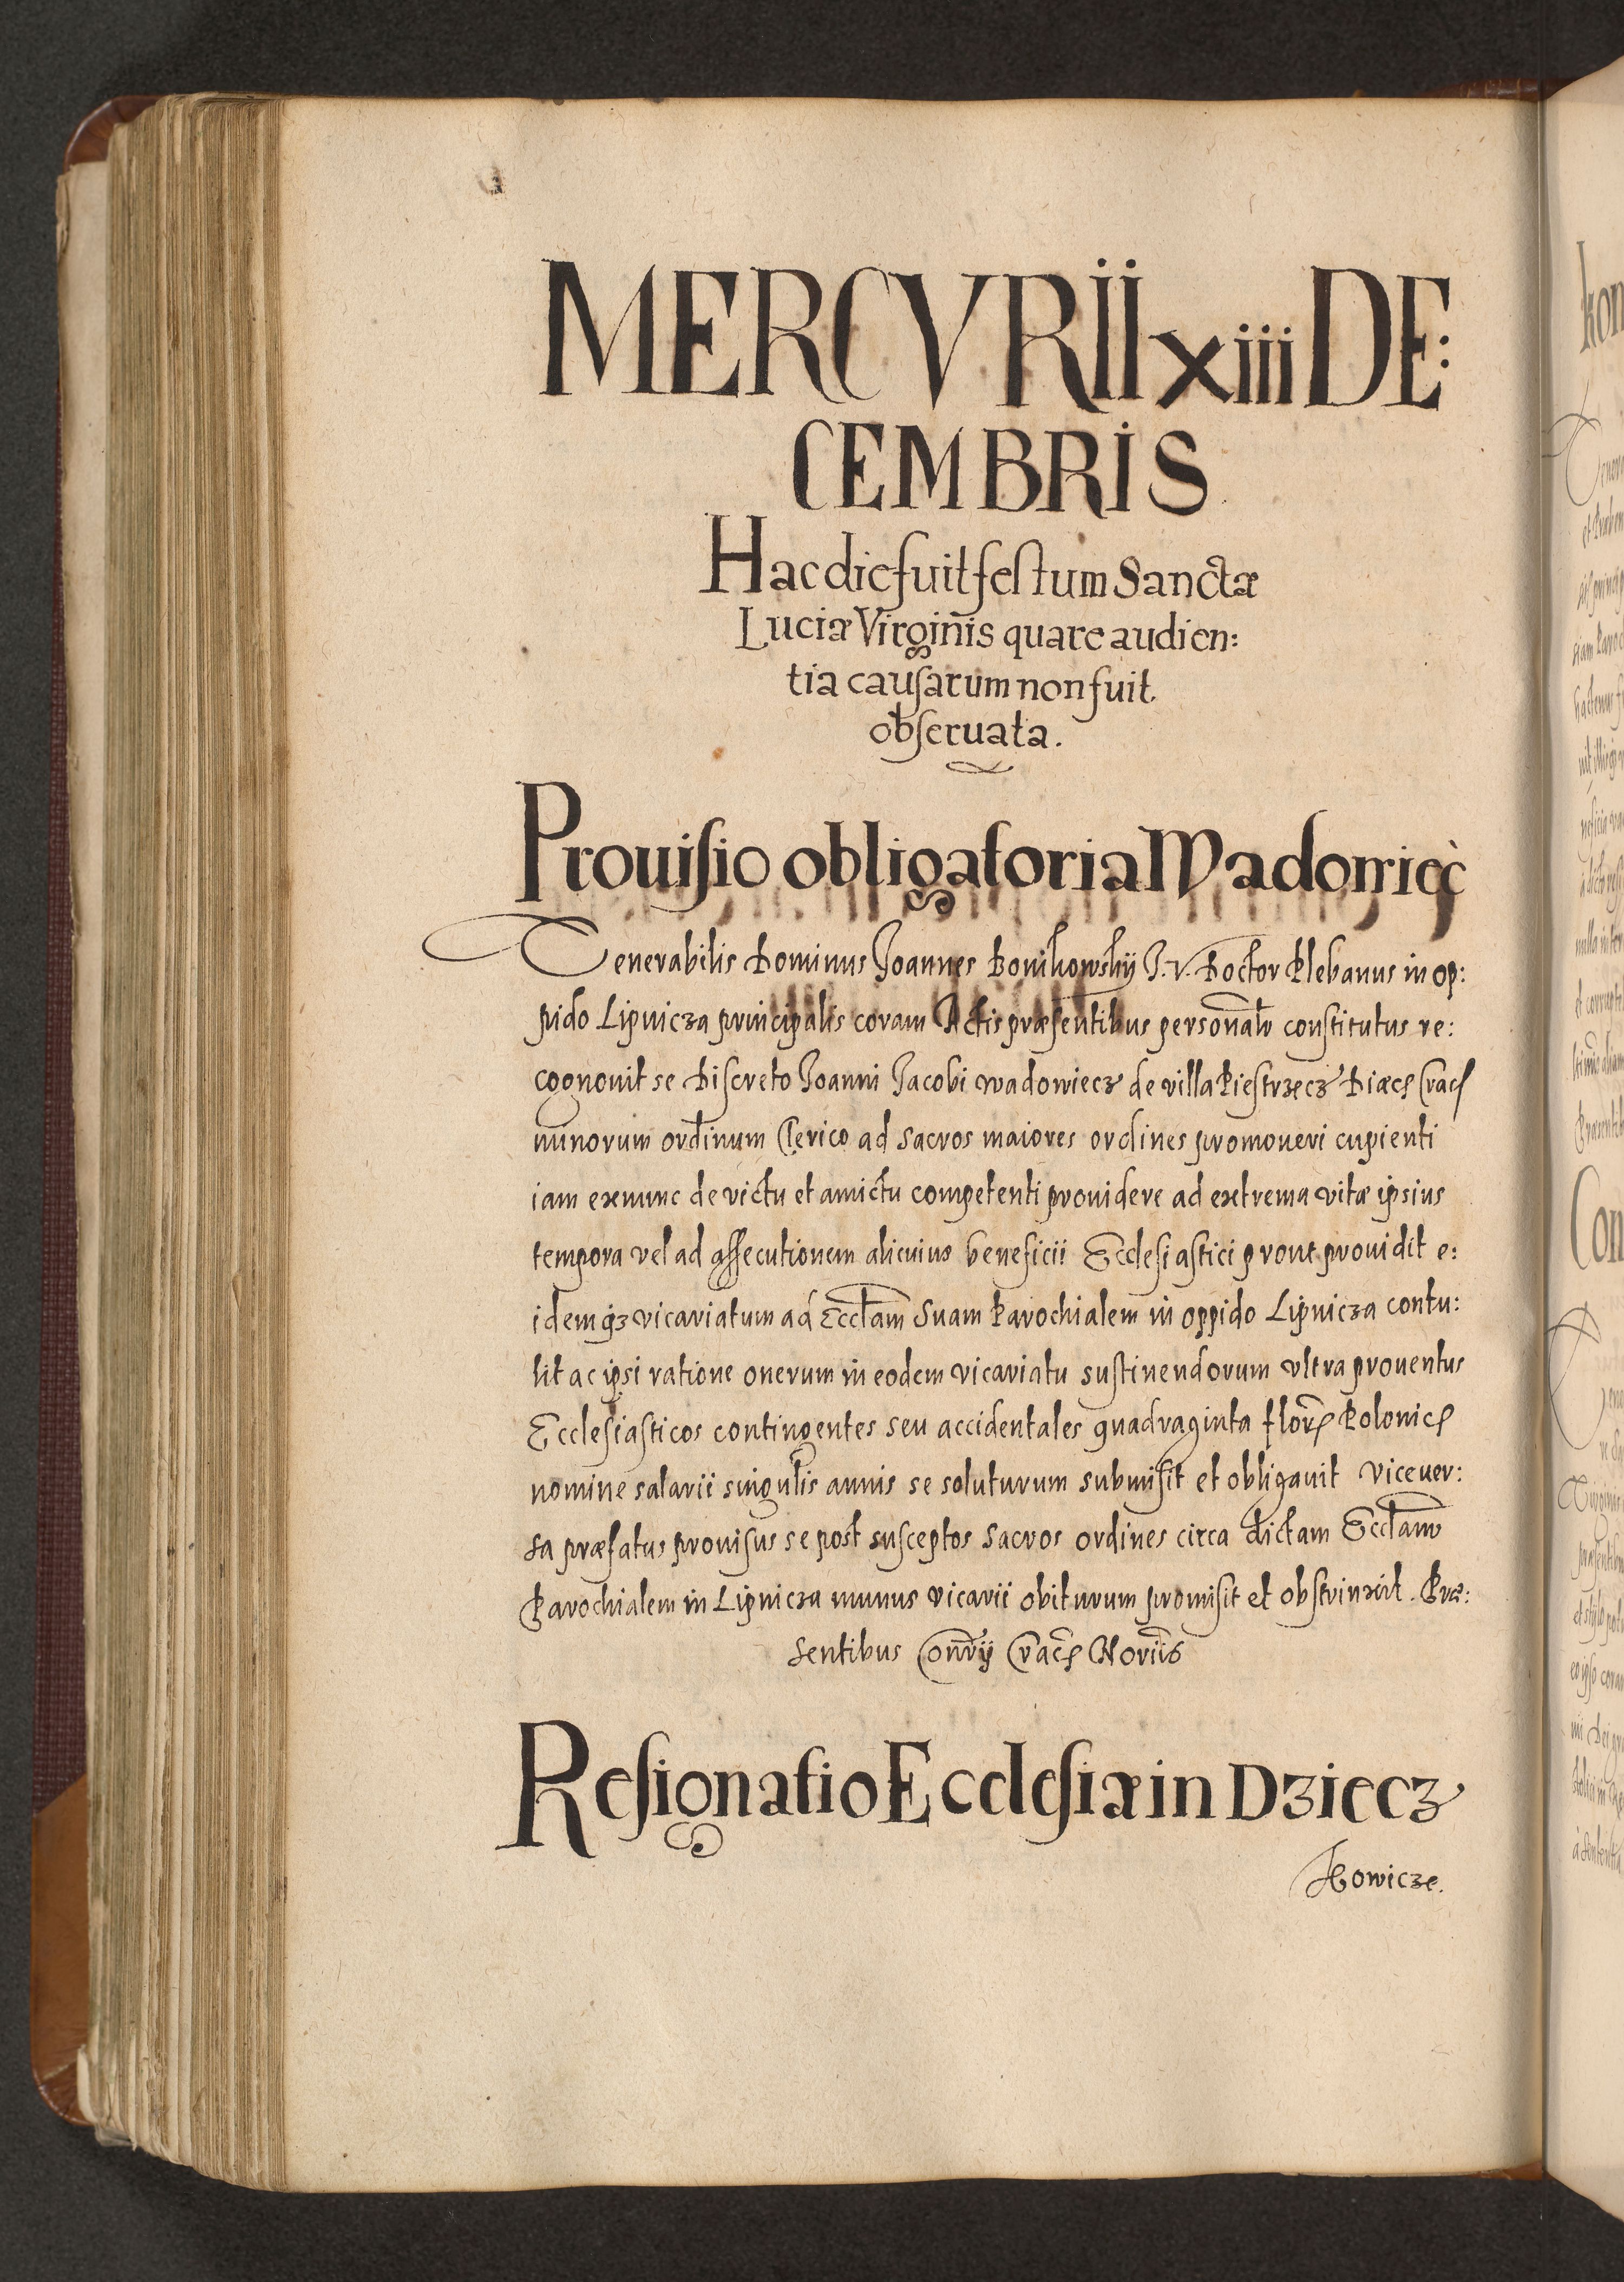 MERCVRII xiii DE:
CEMBRIS
Hac die fuit festum Sanctæ
Luciæ Virginis quare audien:
tia causarum non fuit
obseruata.
Prouisio obligatoria Wadowiecz
Venerabilis Dominus Joannes Bonikowskÿ J. V. Doctor Plebanus in op:
pido Lipnicza principalis coram Actis præsentibus personalr constitutus re:
cognouit se Discreto Joanni Jacobi wadowiecz de villa Piestrzecz Diæc Crac
minorum ordinum Clerico ad sacros maiores ordines promoueri cupienti
iam exnunc de victu et amictu competenti prouidere ad extrema vitæ ipsius
tempora vel ad assecutionem alicuius beneficii Ecclesiastici prout prouidit e:
idemqz vicariatum ad Eccłam suam Parochialem in oppido Lipnicza contu:
lit ac ipsi ratione onerum in eodem vicariatu sustinendorum vltra prouentus
Ecclesiasticos contingentes seu accidentales quadraginta flor Polonic
nomine salarii singulis annis se soluturum submisit et obligauit viceuer:
sa præfatus prouisus se post susceptos sacros ordines circa dictam Eccłam
Parochialem in Lipnicza munus vicarii obiturum promisit et obstrinxit. Præ:
sentibus Crac Noriis
Resignatio Ecclesiæ in Dziecz
kowicze.